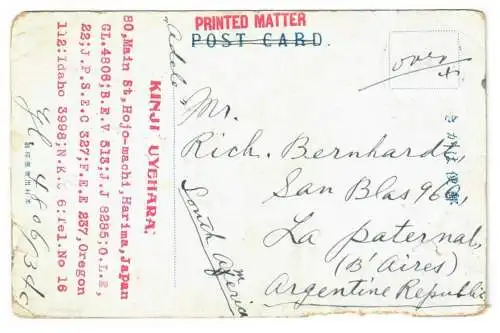 PRINTED MATTER
POST CARD.
over
"Adele"
Mr.
Rich. Bernhardt,
San Blas 960,
La paternal,
(B'Aires)
Argentine Republic
South America
KINJI UYEHARA:
80,Main St,Hojo-machi,Harima,Japan
GL.4806;B.E.V 513;T.J 8285;O.L.E,
22;J.P.S.E.C 327;F.E.E 237,Oregon
112:Idaho 3998;N.K.S 6;Tel.No 16